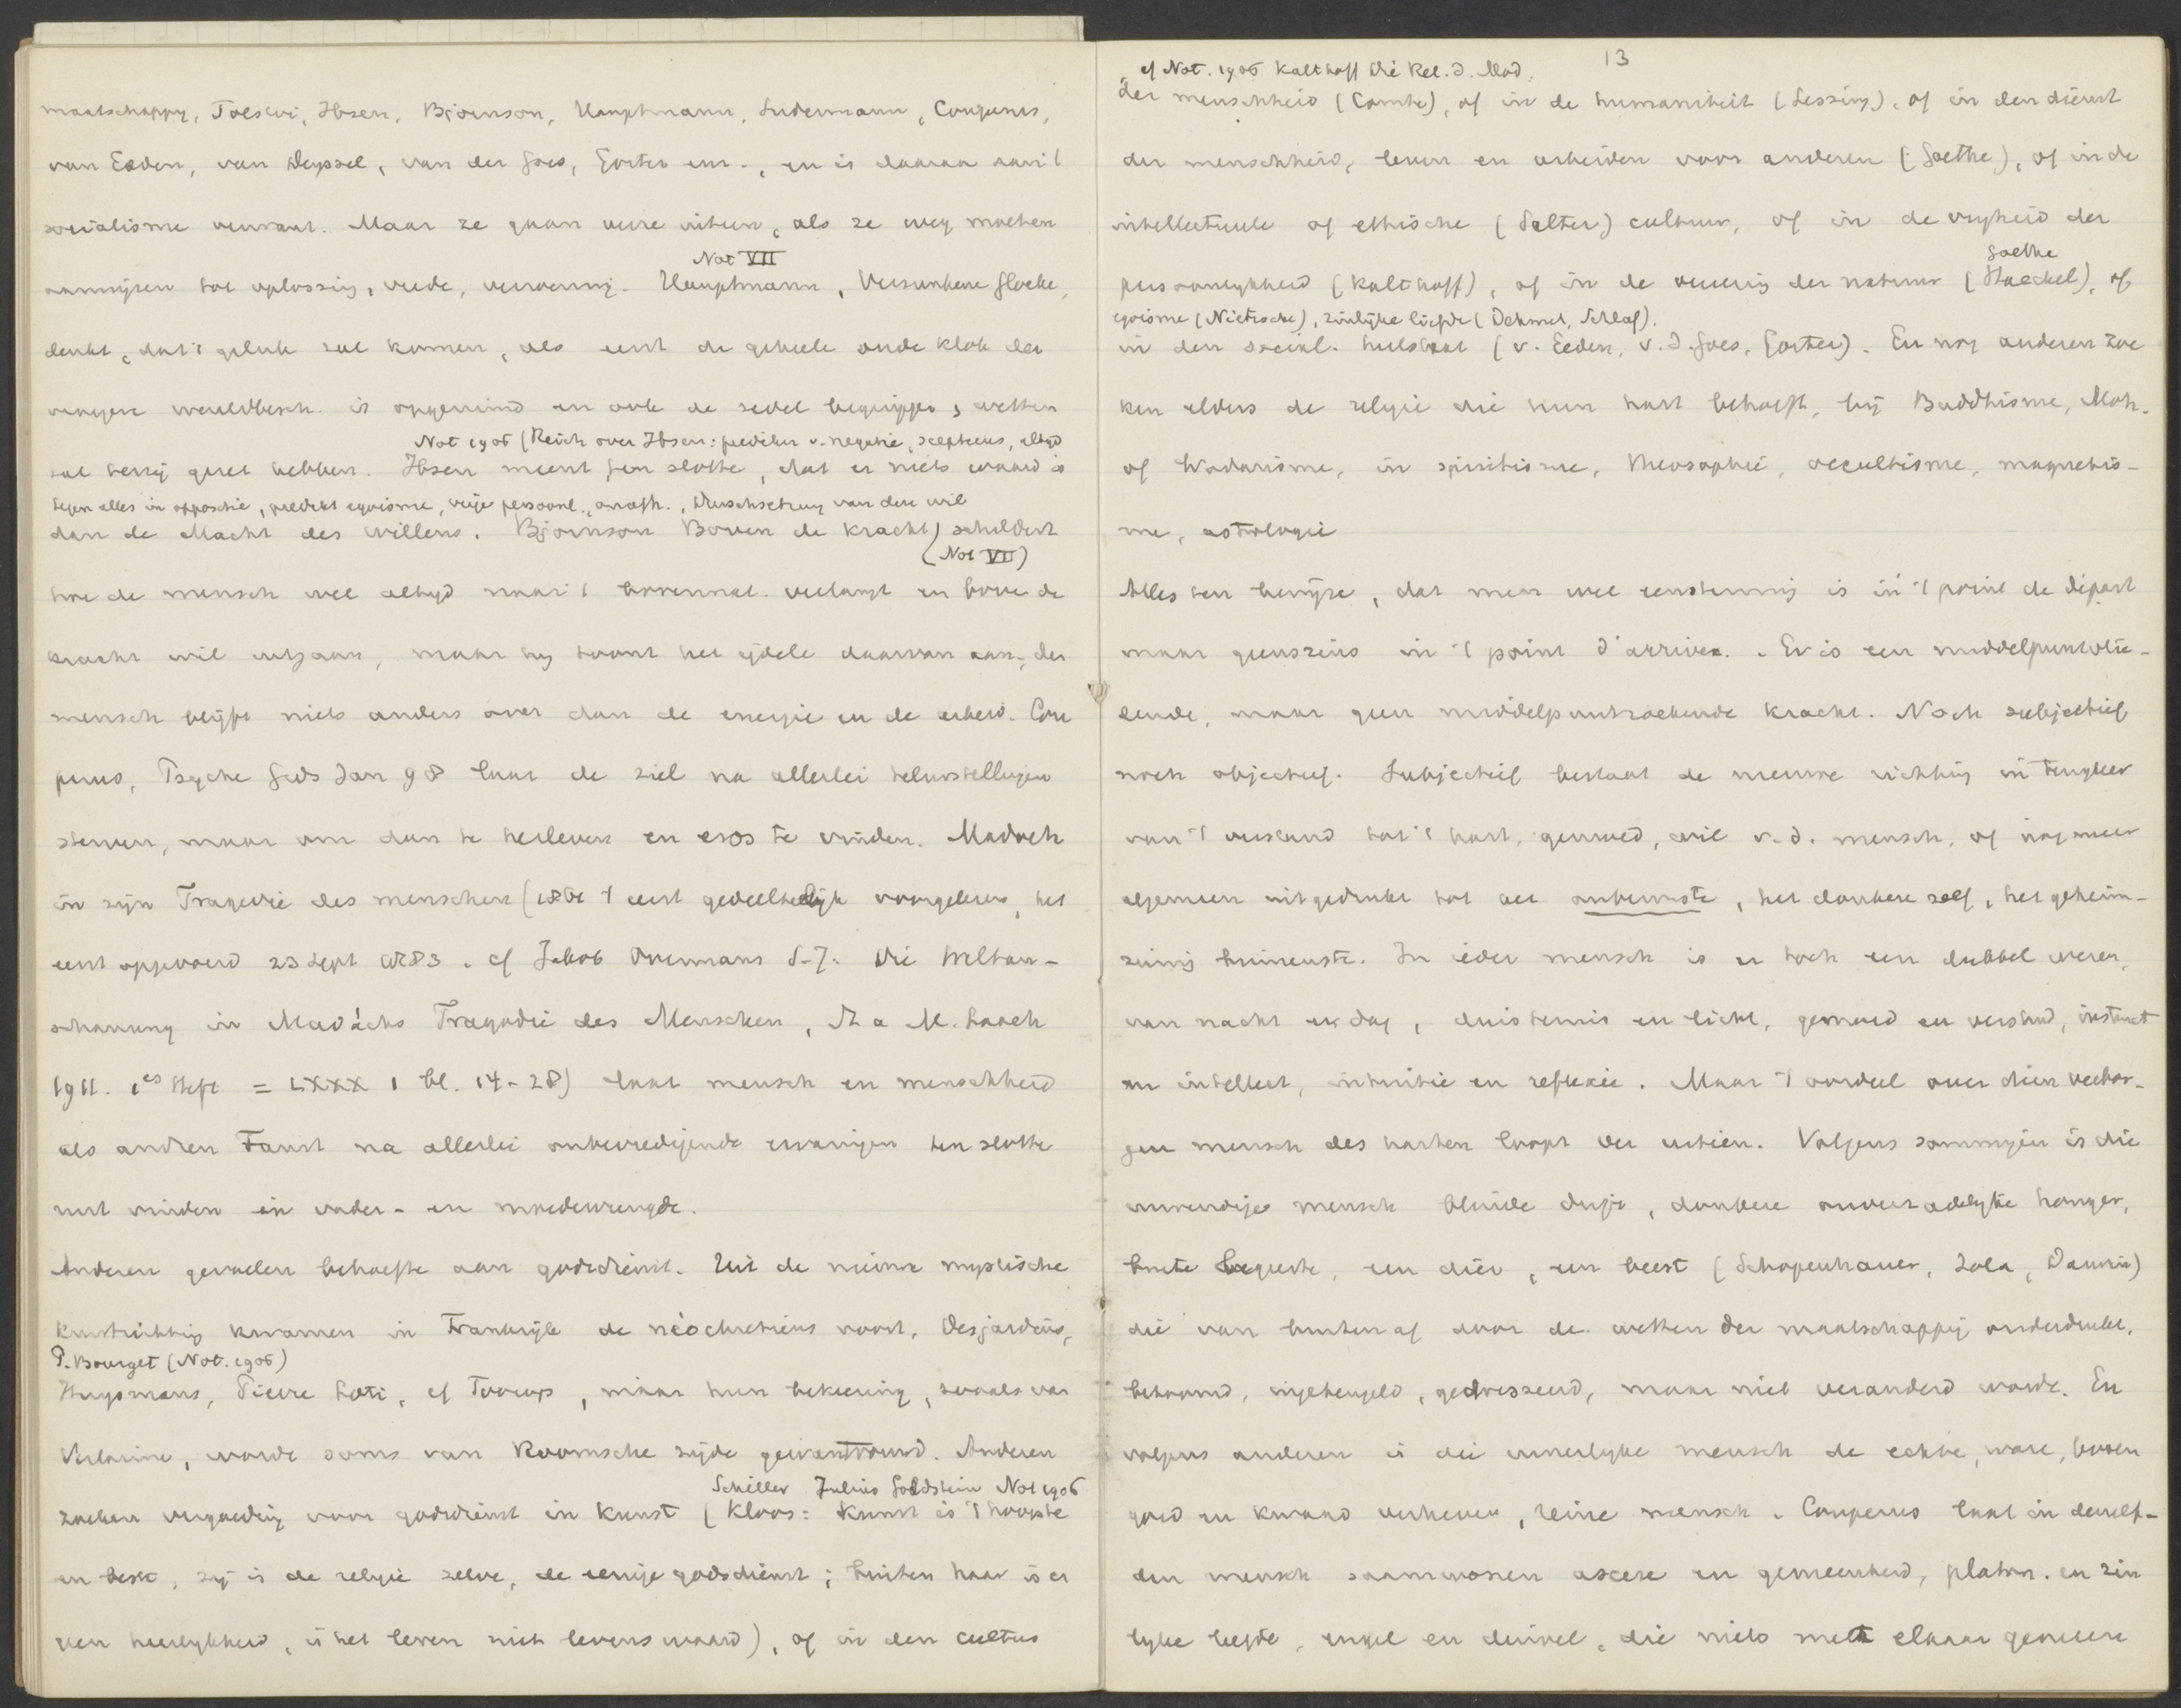 maatschappij, Tolstoi, Ibsen, Björnson, Hauptmann, Sudermann, Couperus,
van Eeden, van Deyssel, van der Goes, Gorter enz., en is daaraan aan 't
socialisme verwant. Maar ze gaan verre uiteen, als ze weg moeten
Not VII
aanwijzen tot oplossing, vrede, verzoening. Hauptmann, Versunkene Glocke,
denkt, dat 't geluk zal komen, als eerst de geheele oude klok der
vroegere wereldbesch. is opgeruimd en ook de zedel. begrippen, wetten
Not 1906 (Reich over Ibsen: prediker v. negatie, scepticus, altijd
zal hebben. Ibsen meent ten slotte, dat er niets waard is
tegen alles in oppositie, predikt egoisme, vrije persoonl., Durchsetzung van den wil
dan de Macht des willens. Bjornson Boven de kracht) schildert
(Not VII)
hoe de mensch wel altijd naar 't bovennat. verlangt en boven de
kracht wil uitgaan, maar hij toont het ijdele daarvan aan, den
mensch blijft niets anders over dan de energie en de arbeid. Cou
perus, Psyche Gids Jan 98 laat de ziel na allerlei teleurstellingen
sterven, maar om dan te herleven en eros te vinden. Madach
in zijn Tragedie des menschen ( eerst gedeeltelijk voorgelezen, het
eerst opgevoerd 23 Sept 1883. cf Jakob Overmans S.J. Die Weltan-
schauung in Madáchs Tragödie des Menschen, St a M. Laach
1911. 1es Heft = LXXX 1 bl. 14-28) laat mensch en menschheid
als andren Faust na allerlei onbevredigende ervaringen ten slotte
rust vinden in vader- en moedervreugde.
Anderen gevoelen behoefte aan godsdienst. Uit de nieuwe mystische
kunstrichting kwamen in Frankrijk de néochretiens voort, Desjardins,
P. Bourget (Not. 1906)
Huysmans, Pierre Loti, cf Toorop, maar hun bekeering, zooals van
Verlaine, wordt soms van Roomsche zijde gewantrouwd. Anderen
Schiller Julius Goldstein Not 1906
zoeken vergoeding voor godsdienst in kunst (Kloos: kunst is 't hoogste
en beste, zij is de religie zelve, de eenige godsdienst; buiten haar is er
geen heerlijkheid, is het leven niet levenswaard), of in den cultus
13
cf Not. 1906 Kalthoff Die Rel. d. Mod.
der menschheid (Comte), of in de humaniteit (Lessing), of in den dienst
der menschheid, leven en arbeiden voor anderen (Goethe), of in de
intellectueele of ethische (Salter) cultuur, of in de vrijheid der
Goethe
persoonlijkheid (Kalthoff), of in de vereering der natuur (Haeckel), of
egoisme (Nietzsche), zinlijke liefde (Dehmel, Schlaf).
in den social. heilstaat (v. Eeden, v. d. Goes, Gorter). En nog anderen zoe
ken elders de religie die hun hart behoeft, bij Buddhisme, Moh.
of Wodanisme, in spiritisme, theosophie, occultisme, magnetis-
me, astrologie
Alles ten bewijze, dat men wel eenstemmig is in 't point de départ
maar geenszins in 't point d'arrivée. Er is een middelpuntvlie-
dende, maar geen middelpuntzoekende kracht. Noch subjectief
noch objectief. Subjectief bestaat de nieuwe richting in terugkeer
van 't verstand tot 't hart, gemoed, wil v. d. mensch, of nog meer
algemeen uitgedrukt tot het onbewuste, het donkere zelf, het geheim-
zinnig binnenste. In ieder mensch is er toch een dubbel wezen,
van nacht en dag, duisternis en licht, gemoed en verstand, instinct
en intellect, intuitie en reflexie. Maar 't oordeel over dien verbor-
gen mensch des harten loopt ver uiteen. Volgens sommigen is die
inwendige mensch blinde drift, donkere onverzadelijke honger,
brute begeerte, een dier, een beest (Schopenhauer, Zola, Darwin)
die van buiten af door de wetten der maatschappij onderdrukt,
betoomd, ingeteugeld, gedresseerd, maar niet veranderd wordt. En
volgens anderen is die innerlijke mensch de echte, ware, boven
goed en kwaad verheven, reine mensch. Couperus laat in denzelf-
den mensch saamwonen ascese en gemeenheid, platon. en zin
lijke liefde, engel en duivel, die niets met elkaar gemeen